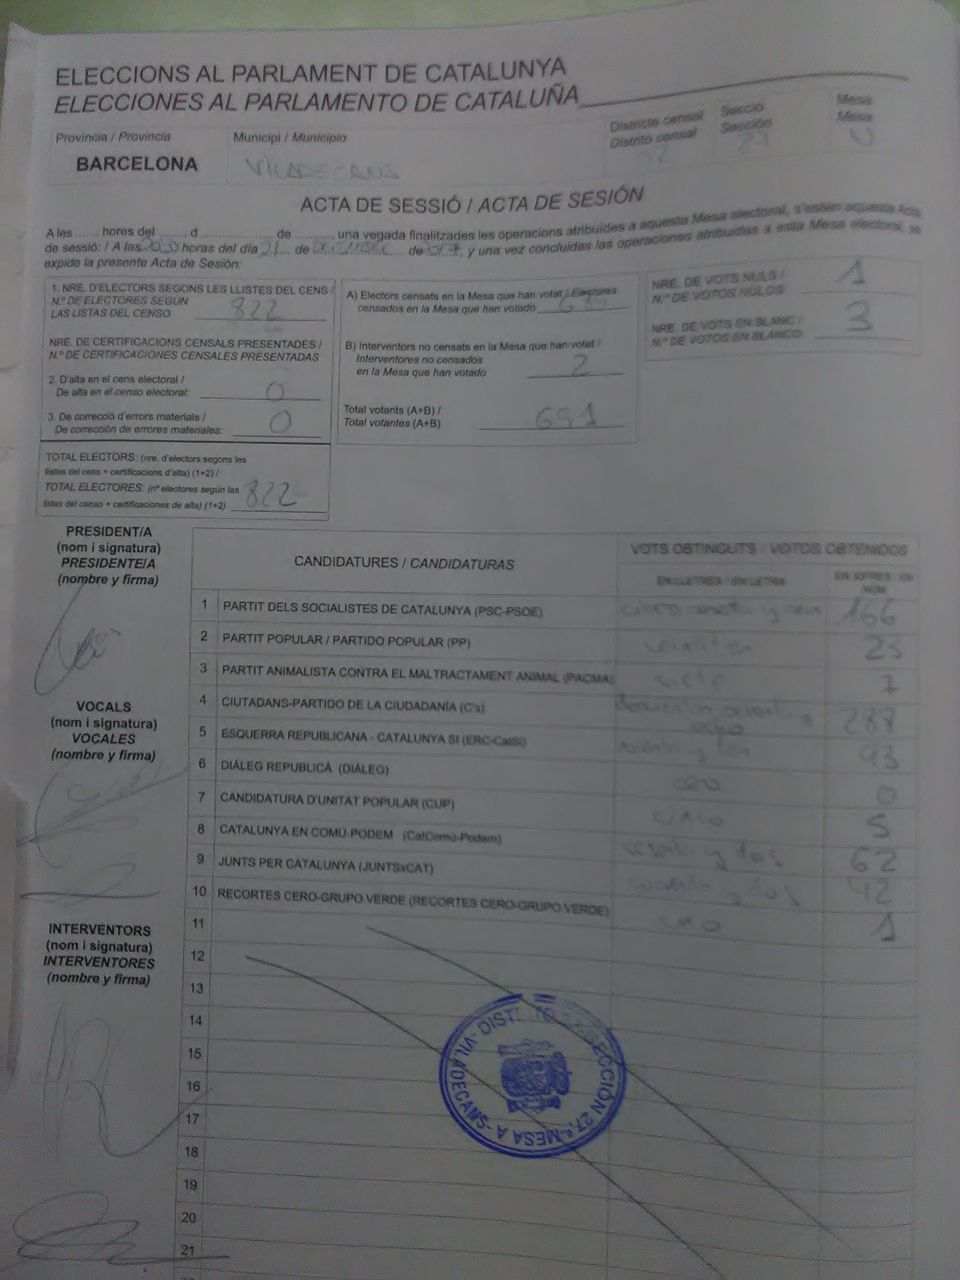 ELECCIONS AL PARLAMENT DE CATALUNYA
ELECCIONES AL PARLAMENTO DE CATALUÑA
Provincia / Provincia
BARCELONA
Municipi / Municipio
VILADECANS
Districte censal
Distrito censal
Secció
Sección
Mesa
Mesa
ACTA DE SESSIÓ / ACTA DE SESIÓN
A les ...... hores del ...... d ...... de ......, una vegada finalitzades les operacions atribuïdes a aquesta Mesa electoral, s'estén aquesta Acta
de sessió: / A las horas del día 21 de DICIEMBRE de 2017, y una vez concluidas las operaciones atribuidas a esta Mesa electoral, se
expide la presente Acta de Sesión:
1. NRE. D'ELECTORS SEGONS LES LLISTES DEL CENS /
N.º DE ELECTORES SEGÚN
LAS LISTAS DEL CENSO 822
NRE. DE CERTIFICACIONS CENSALS PRESENTADES /
N.º DE CERTIFICACIONES CENSALES PRESENTADAS
2. D'alta en el cens electoral /
De alta en el censo electoral: 0
3. De correcció d'errors materials /
De corrección de errores materiales: 0
TOTAL ELECTORS: (nre. d'electors segons les
llistes del cens + certificacions d'alta) (1+2) /
TOTAL ELECTORES: (nº electores según las
listas del censo + certificaciones de alta) (1+2) 822
A) Electors censats en la Mesa que han votat / Electores
censados en la Mesa que han votado 689
B) Interventors no censats en la Mesa que han votat /
Interventores no censados
en la Mesa que han votado 2
Total votants (A+B) /
Total votantes (A+B) 691
NRE. DE VOTS NULS /
N.º DE VOTOS NULOS 1
NRE. DE VOTS EN BLANC /
N.º DE VOTOS EN BLANCO 3
PRESIDENT/A
(nom i signatura)
PRESIDENTE/A
(nombre y firma)
VOCALS
(nom i signatura)
VOCALES
(nombre y firma)
INTERVENTORS
(nom i signatura)
INTERVENTORES
(nombre y firma)
CANDIDATURES / CANDIDATURAS
VOTS OBTINGUTS / VOTOS OBTENIDOS
EN LLETRES / EN LETRA
EN XIFRES / EN NÚM
1 PARTIT DELS SOCIALISTES DE CATALUNYA (PSC-PSOE) ciento sesenta y seis 166
2 PARTIT POPULAR / PARTIDO POPULAR (PP) veintitres 23
3 PARTIT ANIMALISTA CONTRA EL MALTRACTAMENT ANIMAL (PACMA) siete 7
4 CIUTADANS-PARTIDO DE LA CIUDADANÍA (C's) doscientos ochenta y ocho 288
5 ESQUERRA REPUBLICANA - CATALUNYA SÍ (ERC-CatSí) noventa y tres 93
6 DIÀLEG REPUBLICÀ (DIÀLEG) cero 0
7 CANDIDATURA D'UNITAT POPULAR (CUP) cinco 5
8 CATALUNYA EN COMÚ-PODEM (CatComú-Podem) sesenta y dos 62
9 JUNTS PER CATALUNYA (JUNTSxCAT) cuarenta y dos 42
10 RECORTES CERO-GRUPO VERDE (RECORTES CERO-GRUPO VERDE) uno 1
11
12
13
14
15
16
17
18
19
20
21
VILADECANS - SECCIÓN 27.ª MESA A